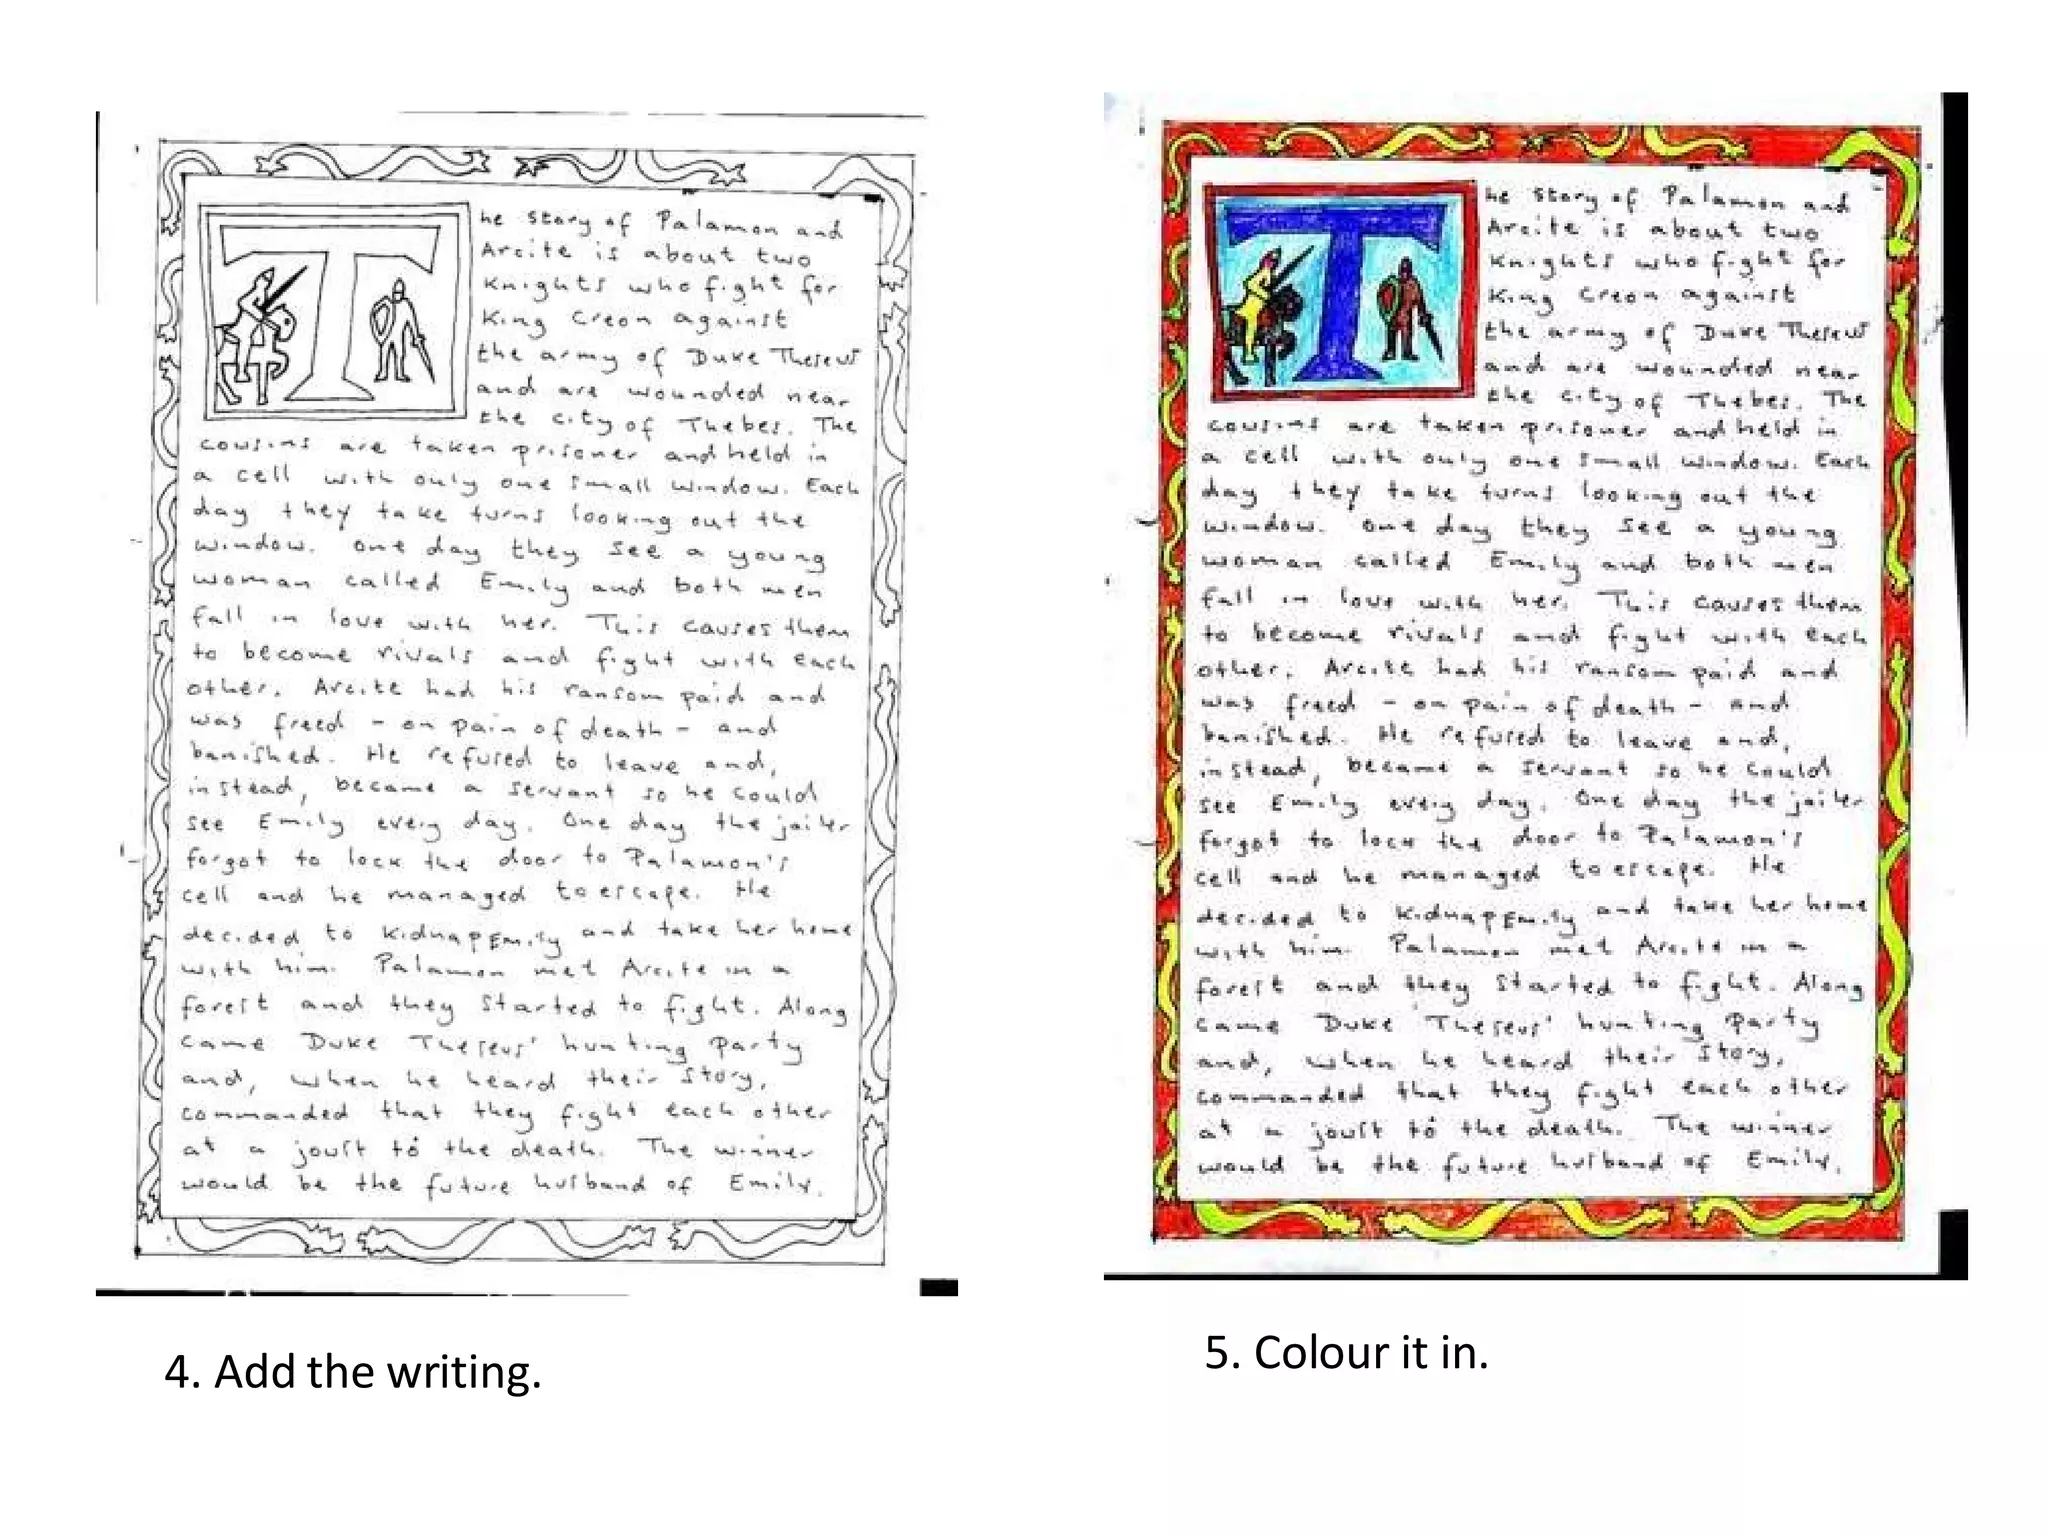 The story of Palamon and
Arcite is about two
Knights who fight for
King Creon against
the army of Duke Theseus
and are wounded near
the city of Thebes. The
cousins are taken prisoner and held in
a cell with only one small window. Each
day they take turns looking out the
window. One day they see a young
woman called Emily and both men
fall in love with her. This causes them
to become rivals and fight with each
other. Arcite had his ransom paid and
was freed - on pain of death - and
banished. He refused to leave and,
instead, became a servant so he could
see Emily every day. One day the jailer
forgot to lock the door to Palamon's
cell and he managed to escape. He
decided to kidnap Emily and take her home
with him. Palamon met Arcite in a
forest and they started to fight. Along
came Duke Theseus' hunting party
and, when he heard their story,
commanded that they fight each other
at a joust to the death. The winner
would be the future husband of Emily.
4. Add the writing.
The story of Palamon and
Arcite is about two
Knights who fight for
King Creon against
the army of Duke Theseus
and are wounded near
the city of Thebes. The
cousins are taken prisoner and held in
a cell with only one small window. Each
day they take turns looking out the
window. One day they see a young
woman called Emily and both men
fall in love with her. This causes them
to become rivals and fight with each
other. Arcite had his ransom paid and
was freed - on pain of death - and
banished. He refused to leave and,
instead, became a servant so he could
see Emily every day. One day the jailer
forgot to lock the door to Palamon's
cell and he managed to escape. He
decided to kidnap Emily and take her home
with him. Palamon met Arcite in a
forest and they started to fight. Along
came Duke Theseus' hunting party
and, when he heard their story,
commanded that they fight each other
at a joust to the death. The winner
would be the future husband of Emily.
5. Colour it in.